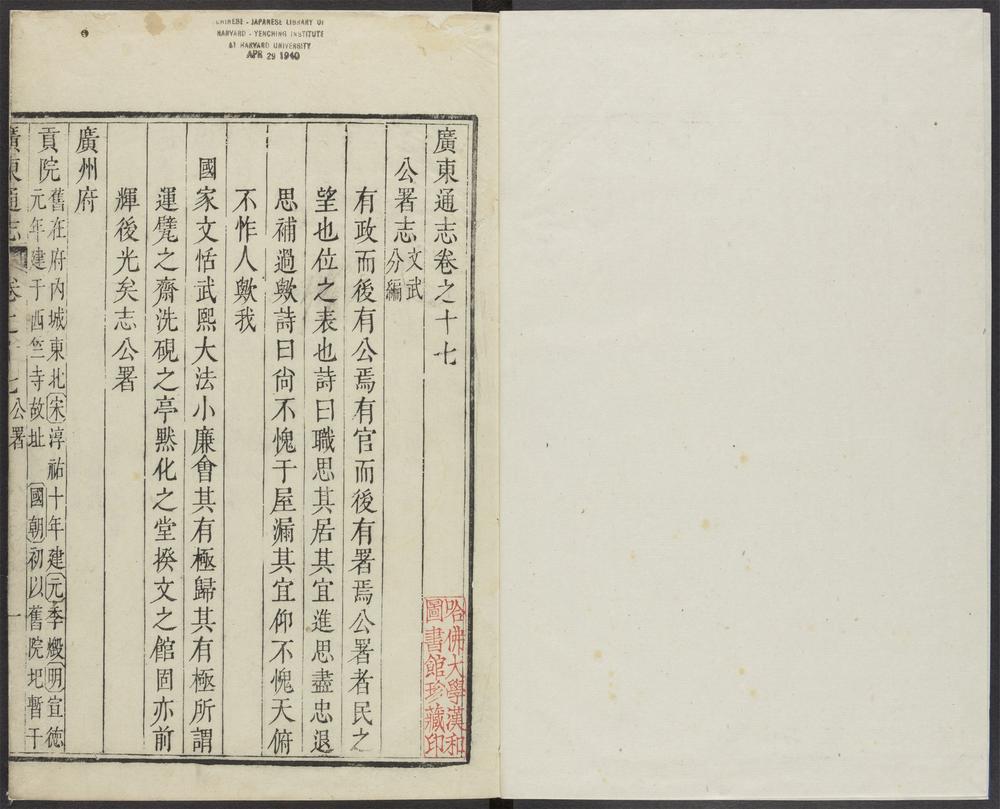 CHINESE - JAPANESE LIBRARY OF
HARVARD - YENCHING INSTITUTE
AT HARVARD UNIVERSITY
APR 29 1940
廣東通志卷之十七
哈佛大學漢和
圖書館珍藏印
公署志文武
分編
有政而後有公焉有官而後有署焉公署者民之
望也位之表也詩曰職思其居其宜進思盡忠退
思補過歟詩曰尙不愧于屋漏其宜仰不愧天俯
不怍人歟我
國家文恬武熙大法小廉會其有極歸其有極所謂
運甓之齋洗硯之亭黙化之堂揆文之館固亦前
輝後光矣志公署
廣州府
貢院舊在府內城東北宋淳祐十年建元季燬明宣德
元年建于西竺寺故址 國朝初以舊院圯暫于
廣東通志 卷之十七 公署 一